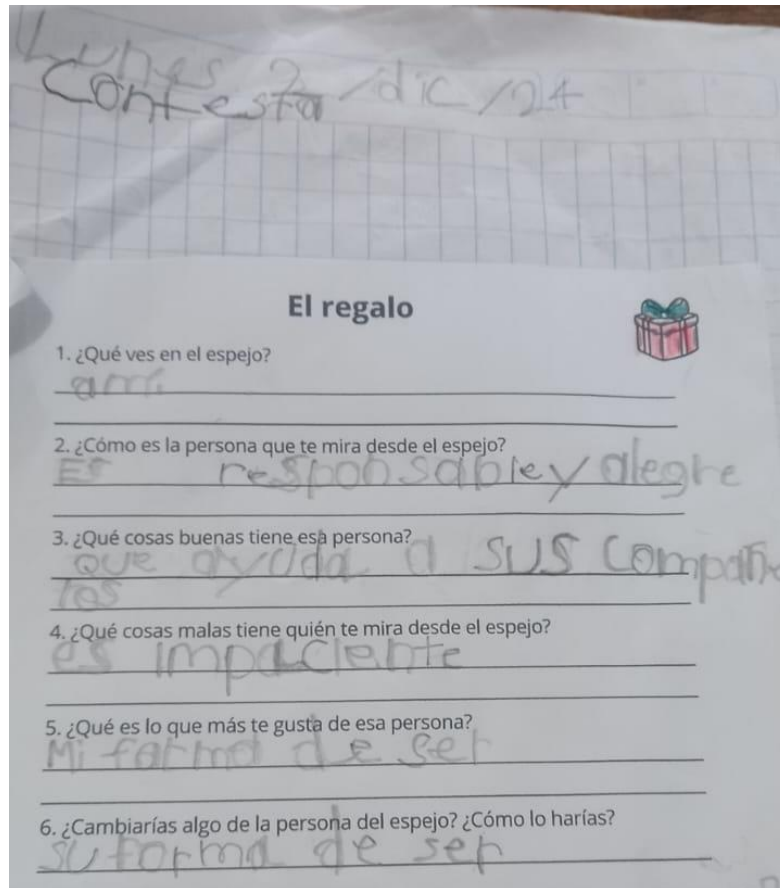 Lunes 2/dic/24
Contesta
El regalo
1. ¿Qué ves en el espejo?
a mi
2. ¿Cómo es la persona que te mira desde el espejo?
Es responsable y alegre
3. ¿Qué cosas buenas tiene esa persona?
Que ayuda a sus compañe
ros
4. ¿Qué cosas malas tiene quién te mira desde el espejo?
es impaciente
5. ¿Qué es lo que más te gusta de esa persona?
Mi forma de ser
6. ¿Cambiarías algo de la persona del espejo? ¿Cómo lo harías?
su forma de ser